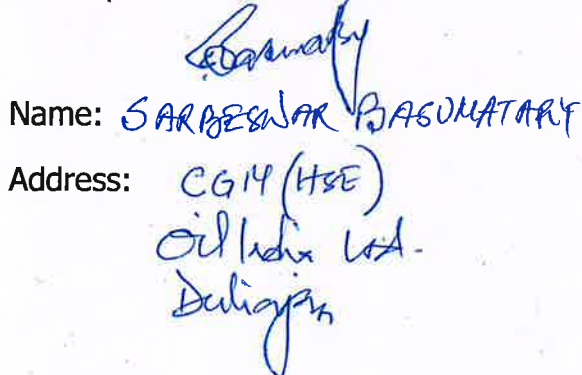 Name: SARBESWAR BASUMATARY
Address: CGM (HSE)
Oil India Ltd.
Duliajan